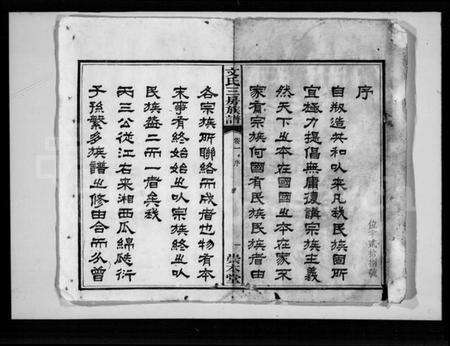 序
自叔造共和以来凡我民国固所
宜極力提倡無庸復講宗族主義
然天下之本在國國之本在家不
家有宗族何國有民族民族者由
文氏三房族譜
卷一 序
一
崇本堂
各宗族所聯絡而成者也物有本
末事有終始始之以宗族終之以
民族蓋二而一者矣我
丙三公從江右来湘西瓜綿瓞衍
子孫繁多族譜之修由合而分曾